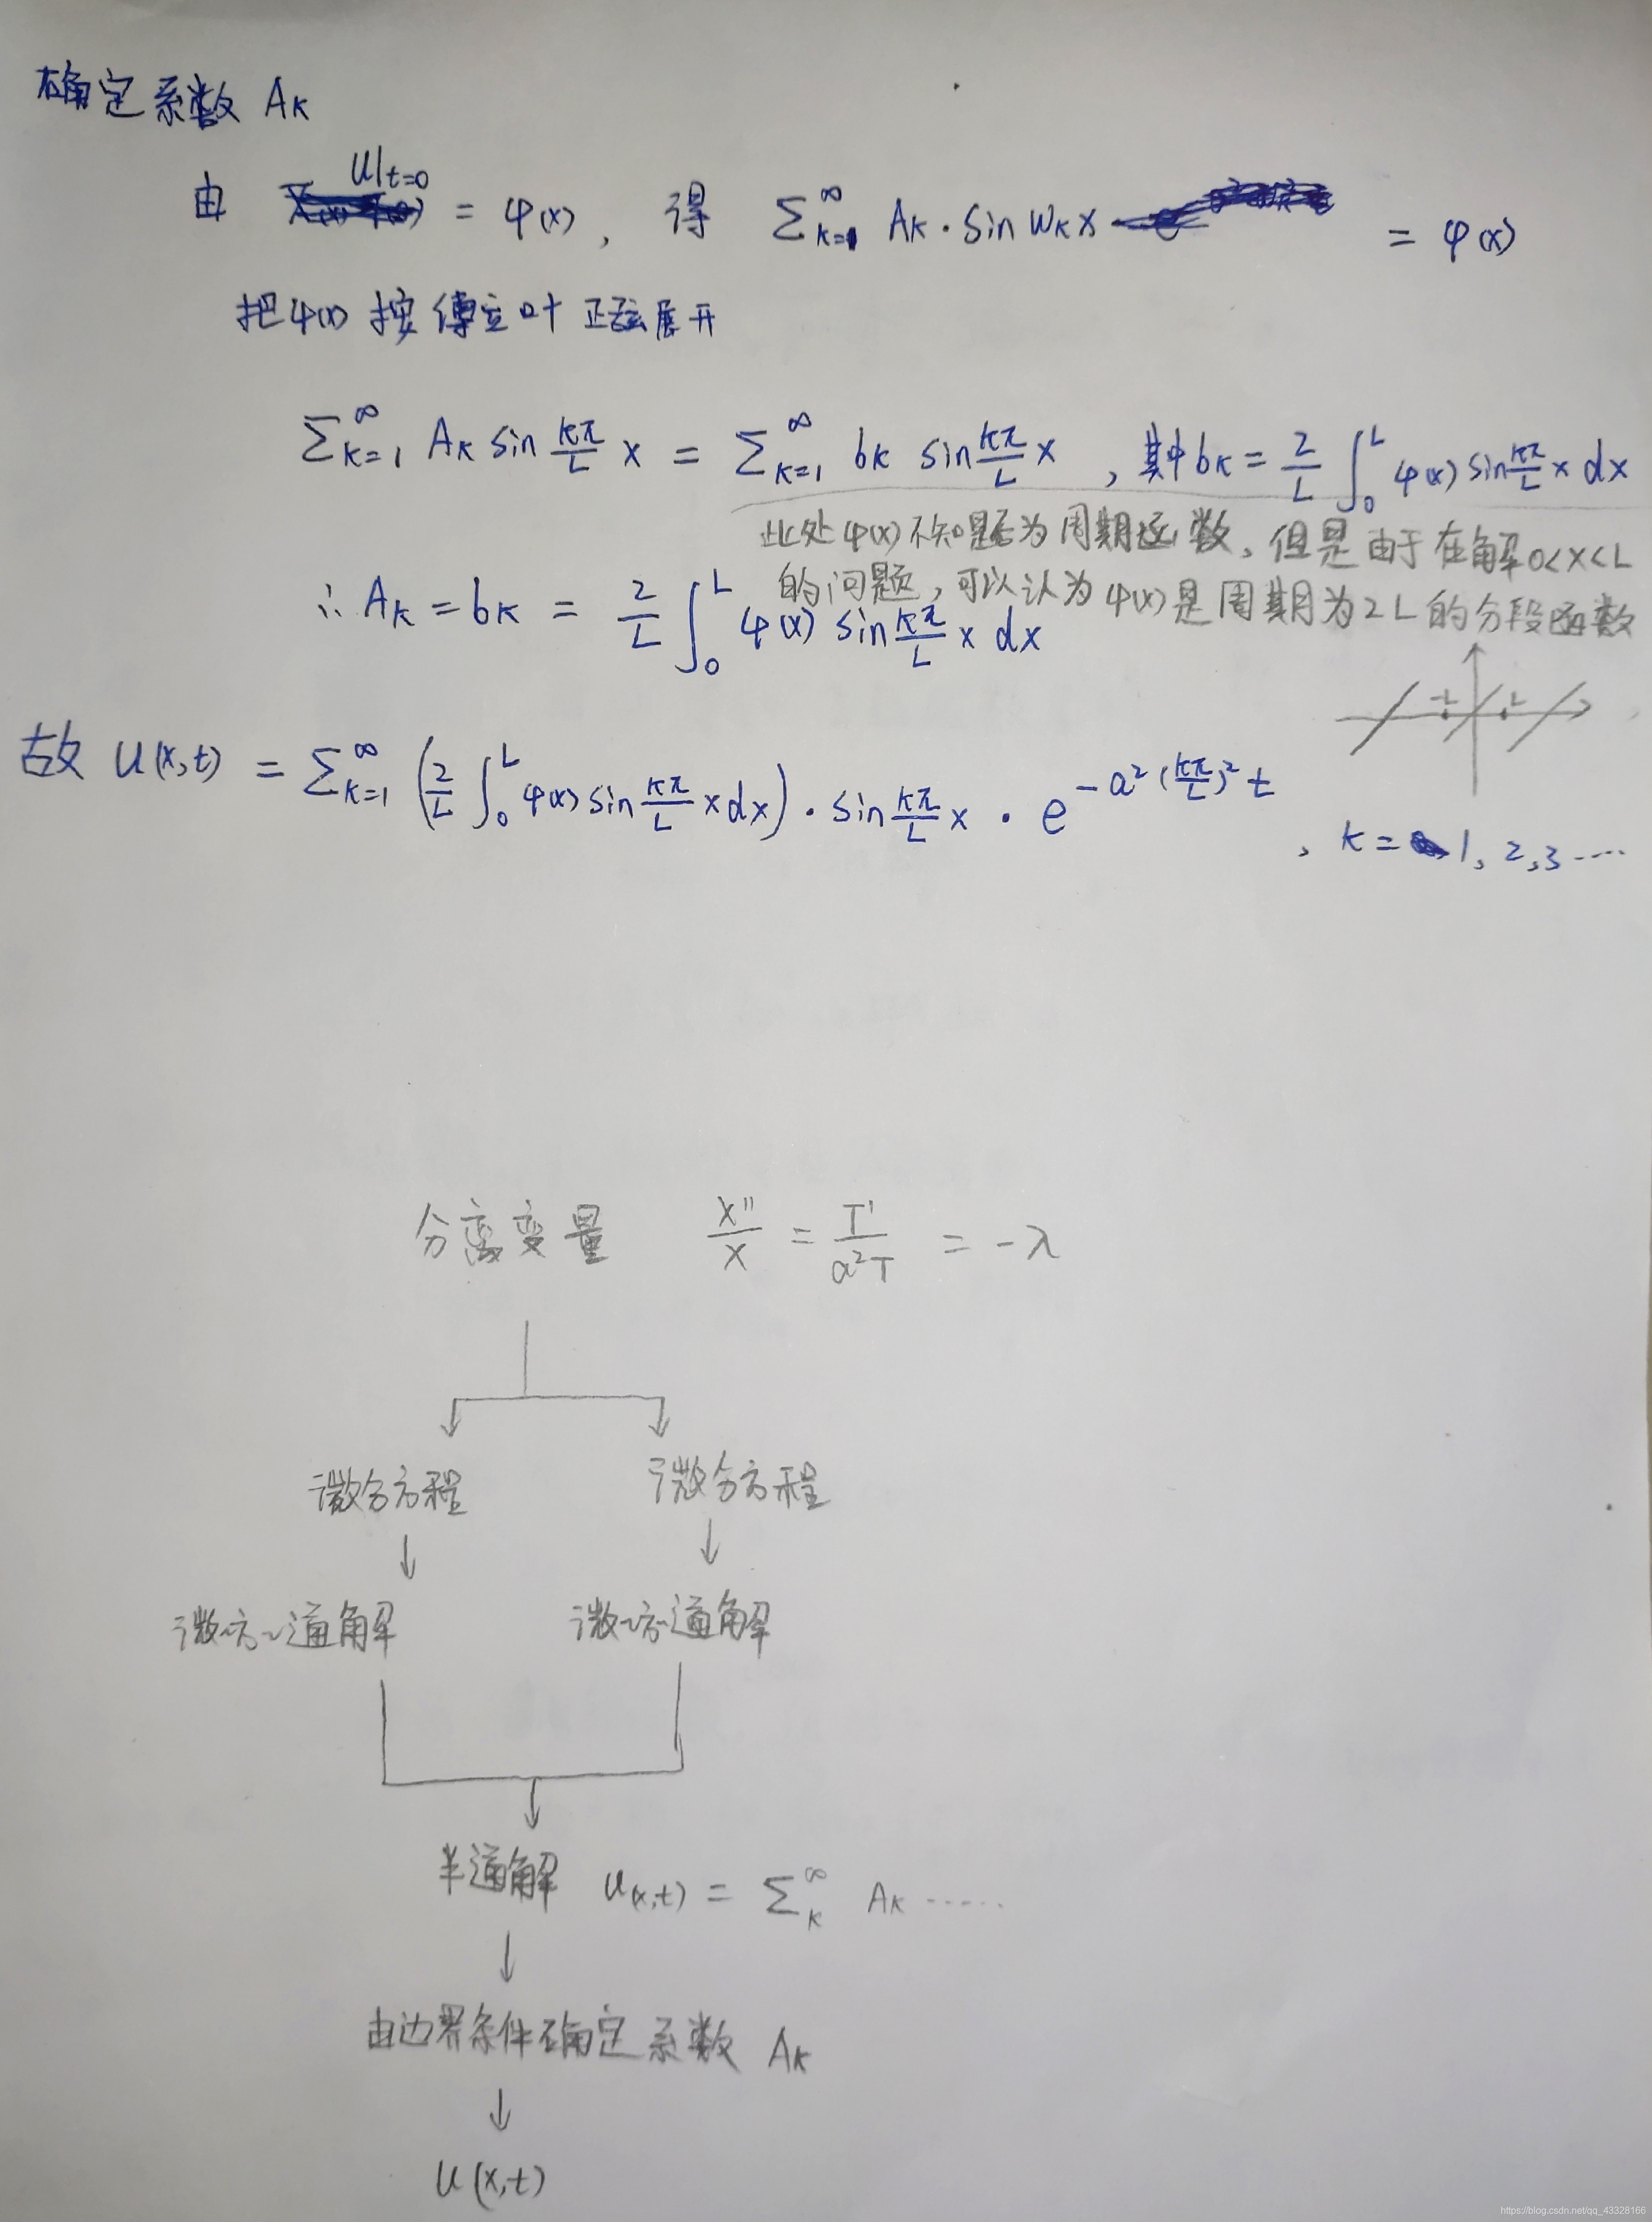 确定系数 Ak
由 u|t=0 = φ(x), 得 ∑k=1^∞ Ak · sin ωk x = φ(x)
把φ(x) 按傅立叶正弦展开
∑k=1^∞ Ak sin kπ/L x = ∑k=1^∞ bk sin kπ/L x , 其中 bk = 2/L ∫0^L φ(x) sin kπ/L x dx
此处φ(x)不知是否为周期函数, 但是由于在解0<x<L
的问题, 可以认为φ(x)是周期为2L的分段函数
∴ Ak = bk = 2/L ∫0^L φ(x) sin kπ/L x dx
-L L
故 u(x,t) = ∑k=1^∞ (2/L ∫0^L φ(x) sin kπ/L x dx) · sin kπ/L x · e^-a²(kπ/L)²t , k = 1, 2, 3 ····
分离变量 X''/X = T'/a²T = -λ
微分方程 微分方程
微方~通解 微方~通解
半通解 u(x,t) = ∑k^∞ Ak ·····
由边界条件确定系数 Ak
u(x,t)
https://blog.csdn.net/qq_43328166